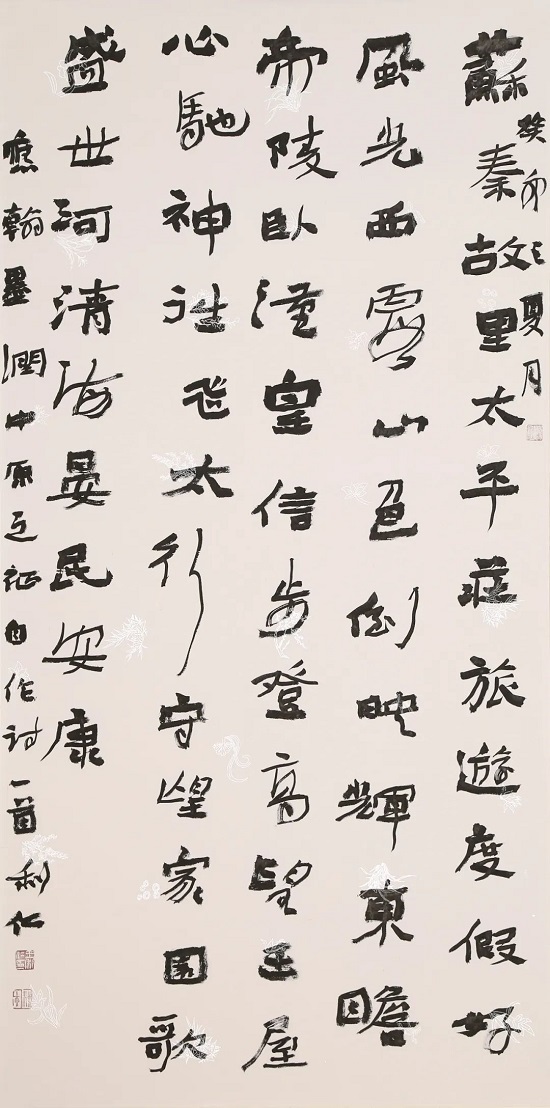 癸卯之夏月
蘇秦故里太平莊旅遊度假好
風光西霞山色倒映輝東瞻
帝陵臥漢皇信步登高望王屋
心馳神往飛太行守望家國歌
盛世河清海晏民安康
應翰墨潤中原之征自作詩一首利化